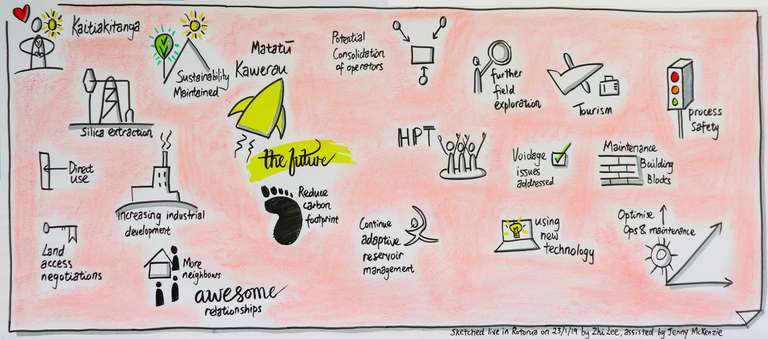 Kaitiakitanga
Sustainability
Maintained
Matatū
Kawerau
Potential
Consolidation
of operators
further
field
exploration
Tourism
process
Safety
Silica extraction
the future
HPT
Voidage
issues
addressed
Maintenance
Building
Blocks
Direct
use
Increasing industrial
development
Reduce
carbon
footprint
Land
access
negotiations
More
neighbours
awesome
relationships
Continue
adaptive
reservoir
management
using
new
technology
Optimise
Ops & maintenance
Sketched live in Rotorua on 23/1/19 by Zhi Lee, assisted by Jenny McKenzie